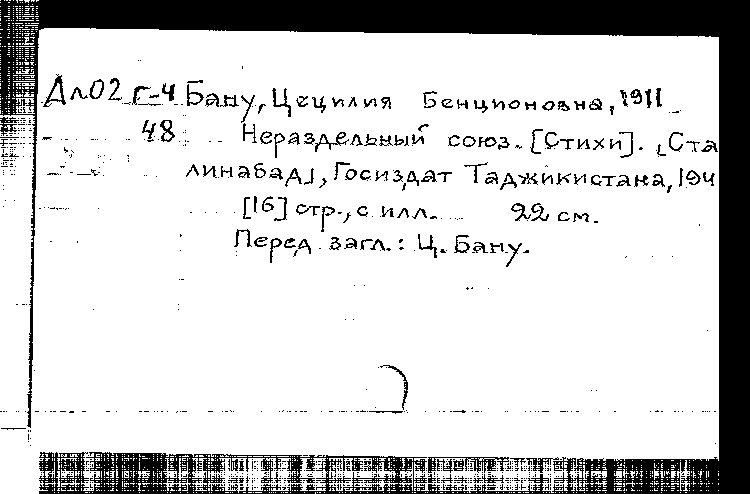 Дл02 г-4 Бану, Цецилия Бенционовна, 1911
48 Нераздельный союз. [Стихи]. [Ста
линабад], Госиздат Таджикистана, 194
[16] стр., с илл. 22 см.
Перед загл.: Ц. Бану.